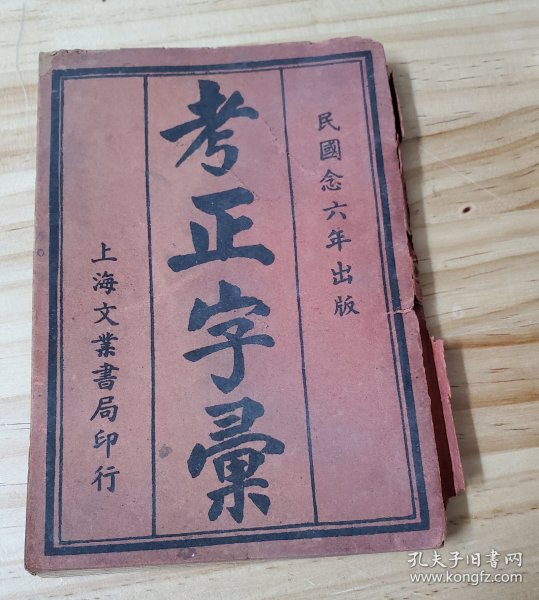 民國念六年出版
考正字彙
上海文業書局印行
孔夫子旧书网
www.kongfz.com